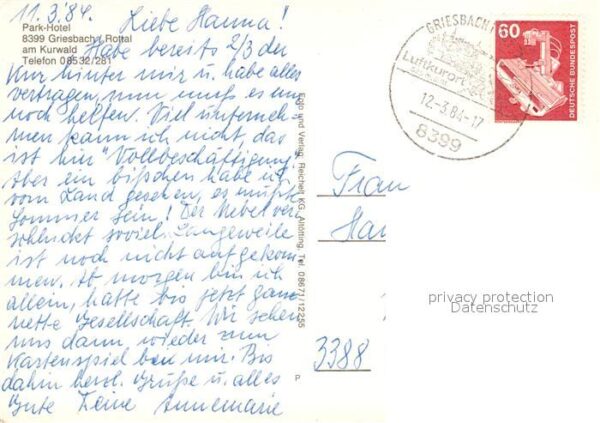 11.3.84. Liebe Hanna!
Park-Hotel
8399 Griesbach i. Rottal
am Kurwald
Telefon 08532/281
Habe bereits 2/3 der
Kur hinter mir u. habe alles
vertragen, nun muß es nur
noch helfen. Viel unterneh-
men kann ich nicht, das
ist hier "Vollbeschäftigung"
Aber ein bißchen habe ich
vom Land gesehen, es müßte
Sommer sein! Der Nebel ver-
schluckt soviel. Langeweile
ist noch nicht aufgekom-
men. Ab morgen bin ich
allein, hatte bis jetzt ganz
nette Gesellschaft. Wir sehen
uns dann wieder zum
Kartenspiel bei mir. Bis
dahin herzl. Grüße u. alles
Gute Deine Annemarie
Foto und Verlag Reichelt KG, Altötting, Tel. 08671/12255
P
GRIESBACH I
Luftkurort
12-3.84-17
8399
60
DEUTSCHE BUNDESPOST
Frau
Han
3388
privacy protection
Datenschutz